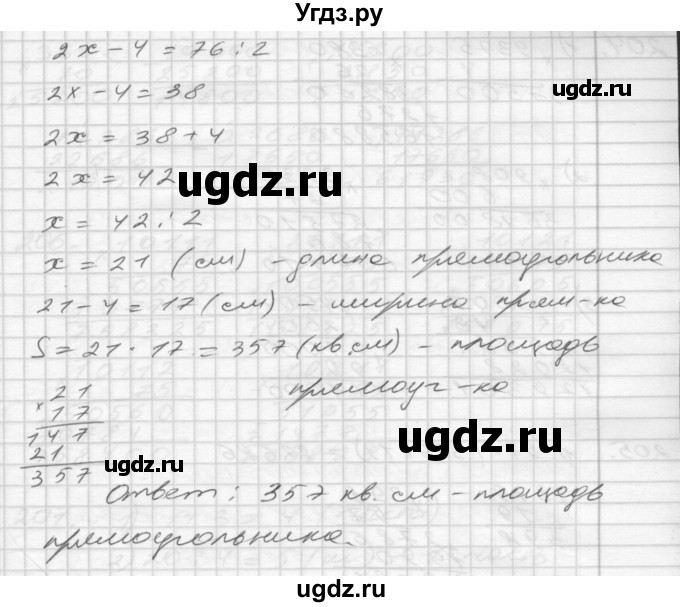 Угдз.ру
2x - 4 = 76 : 2
2x - 4 = 38
ugdz.ru
2x = 38 + 4
2x = 42
ugdz.ru
x = 42 : 2
x = 21 (см) - длина прямоугольника
21 - 4 = 17 (см) - ширина прям-ка
S = 21 · 17 = 357 (кв.см) - площадь
прямоуг-ка
21
× 17
147
21
357
ugdz.ru
ugdz.ru
ugdz.ru
Ответ: 357 кв. см - площадь
прямоугольника.
ugdz.ru